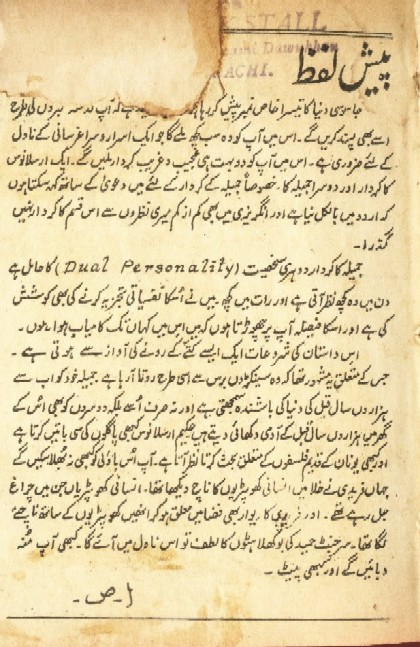 STALL
پیش لفظ
جاسوسی دنیا کا تیسرا خاص نمبر پیش کر رہا ہوں ہے کہ آپ دوسرے نمبروں کی طرح
اسے بھی پسند کریں گے۔ اس میں آپ کو وہ سب کچھ ملے گا جو ایک اسرار و سراغرسانی کے ناول
کے لئے ضروری ہے۔ اس میں آپ کو دو بہت ہی عجیب و غریب کردار ملیں گے۔ ایک ارسلانوس
کا کردار اور دوسرا جمیلہ کا۔ خصوصاً جمیلہ کے کردار کے لئے میں دعویٰ کے ساتھ کہہ سکتا ہوں
کہ اردو میں بالکل نیا ہے اور انگریزی میں بھی کم از کم میری نظروں سے اس قسم کا کردار نہیں
گذرا۔
جمیلہ کا کردار دوہری شخصیت (Dual Personality) کا حامل ہے
دن میں وہ کچھ نظر آتی ہے اور رات میں کچھ۔ میں نے اسکا نفسیاتی تجزیہ کرنے کی بھی کوشش
کی ہے اور اسکا فیصلہ آپ پر چھوڑتا ہوں کہ میں اس میں کہاں تک کامیاب ہوا ہوں۔
اس داستان کی شروعات ایک ایسے کتے کے رونے کی آواز سے ہوتی ہے۔
جس کے متعلق یہ مشہور تھا کہ وہ سینکڑوں برس سے اسی طرح روتا آ رہا ہے۔ جمیلہ خود کو اب سے
ہزاروں سال قبل کی دنیا کی باشندہ سمجھتی ہے اور نہ صرف اُسے بلکہ دوسروں کو بھی اُس کے
گھر میں ہزاروں سال قبل کے آدمی دکھائی دیتے ہیں حکیم ارسلانوس کبھی پاگلوں کی سی باتیں کرتا ہے
اور کبھی یونان کے قدیم فلسفوں کے متعلق بحث کرتا نظر آتا ہے۔ آپ اُس باؤلی کو کبھی نہ بھلا سکیں گے
جہاں فریدی نے خلا میں انسانی کھوپڑیوں کا ناچ دیکھا تھا۔ انسانی کھوپڑیاں جن میں چراغ
جل رہے تھے۔ اور فریدی کا ریوالور بھی فضا میں معلق ہو کر انھیں کھوپڑیوں کے ساتھ ناچنے
لگا تھا۔ سرجنٹ حمید کی بوکھلاہٹوں کا لطف تو اس ناول میں آئے گا۔ کبھی آپ مُنھ
دبائیں گے اور کبھی پیٹ۔
ا۔ ص۔